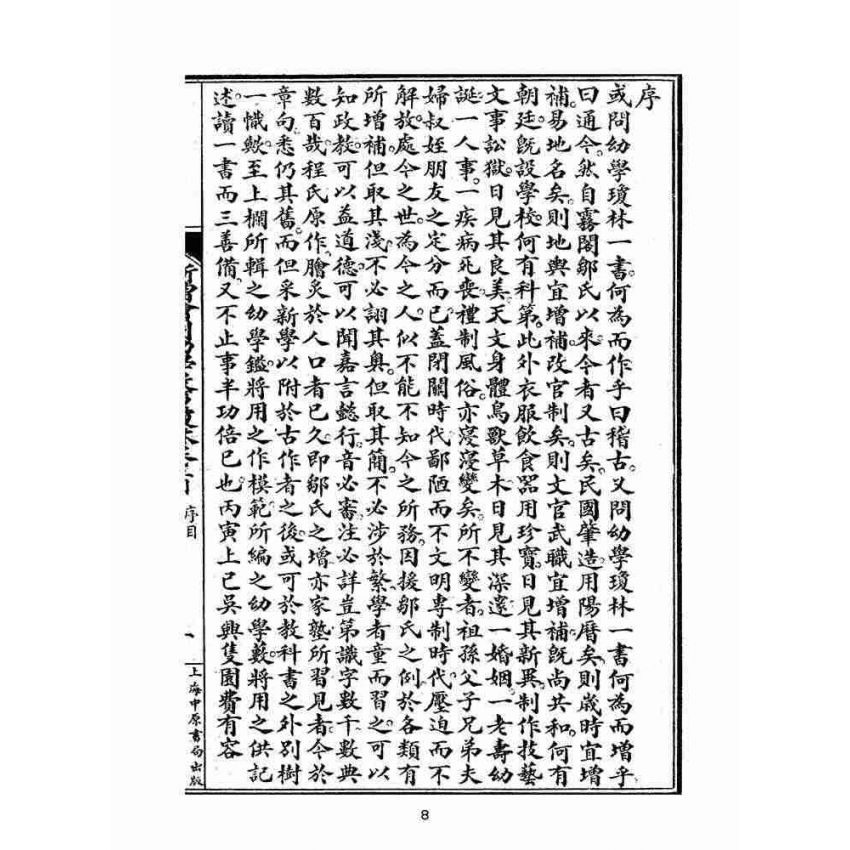 序
或問幼學瓊林一書何為而作乎曰稽古又問幼學瓊林一書何為而增乎
曰通今然自霧閣鄒氏以來今者又古矣民國肇造用陽曆矣則歲時宜增
補易地名矣則地輿宜增補改官制矣則文官武職宜增補既尚共和何有
朝廷既設學校何有科第此外衣服飲食器用珍寶日見其新異制作技藝
文事訟獄日見其良美天文身體鳥獸草木日見其深邃一婚姻一老壽幼
誕一人事一疾病死喪禮制風俗亦寖寖變矣所不變者祖孫父子兄弟夫
婦叔姪朋友之定分而已蓋閉關時代鄙陋而不文明專制時代壓迫而不
解放處今之世為今之人似不能不知今之所務因援鄒氏之例於各類有
所增補但取其淺不必詡其奧但取其簡不必涉於繁學者童而習之可以
知政教可以益道德可以聞嘉言懿行音必審注必詳豈第識字數千數典
數百哉程氏原作膾炙於人口者已久即鄒氏之增亦家塾所習見者今於
章句悉仍其舊而但采新學以附於古作者之後或可於教科書之外別樹
一幟歟至上欄所輯之幼學鑑將用之作模範所編之幼學藪將用之供記
述讀一書而三善備又不止事半功倍已也丙寅上巳吳興隻園費有容
序目
一
上海中原書局出版
8